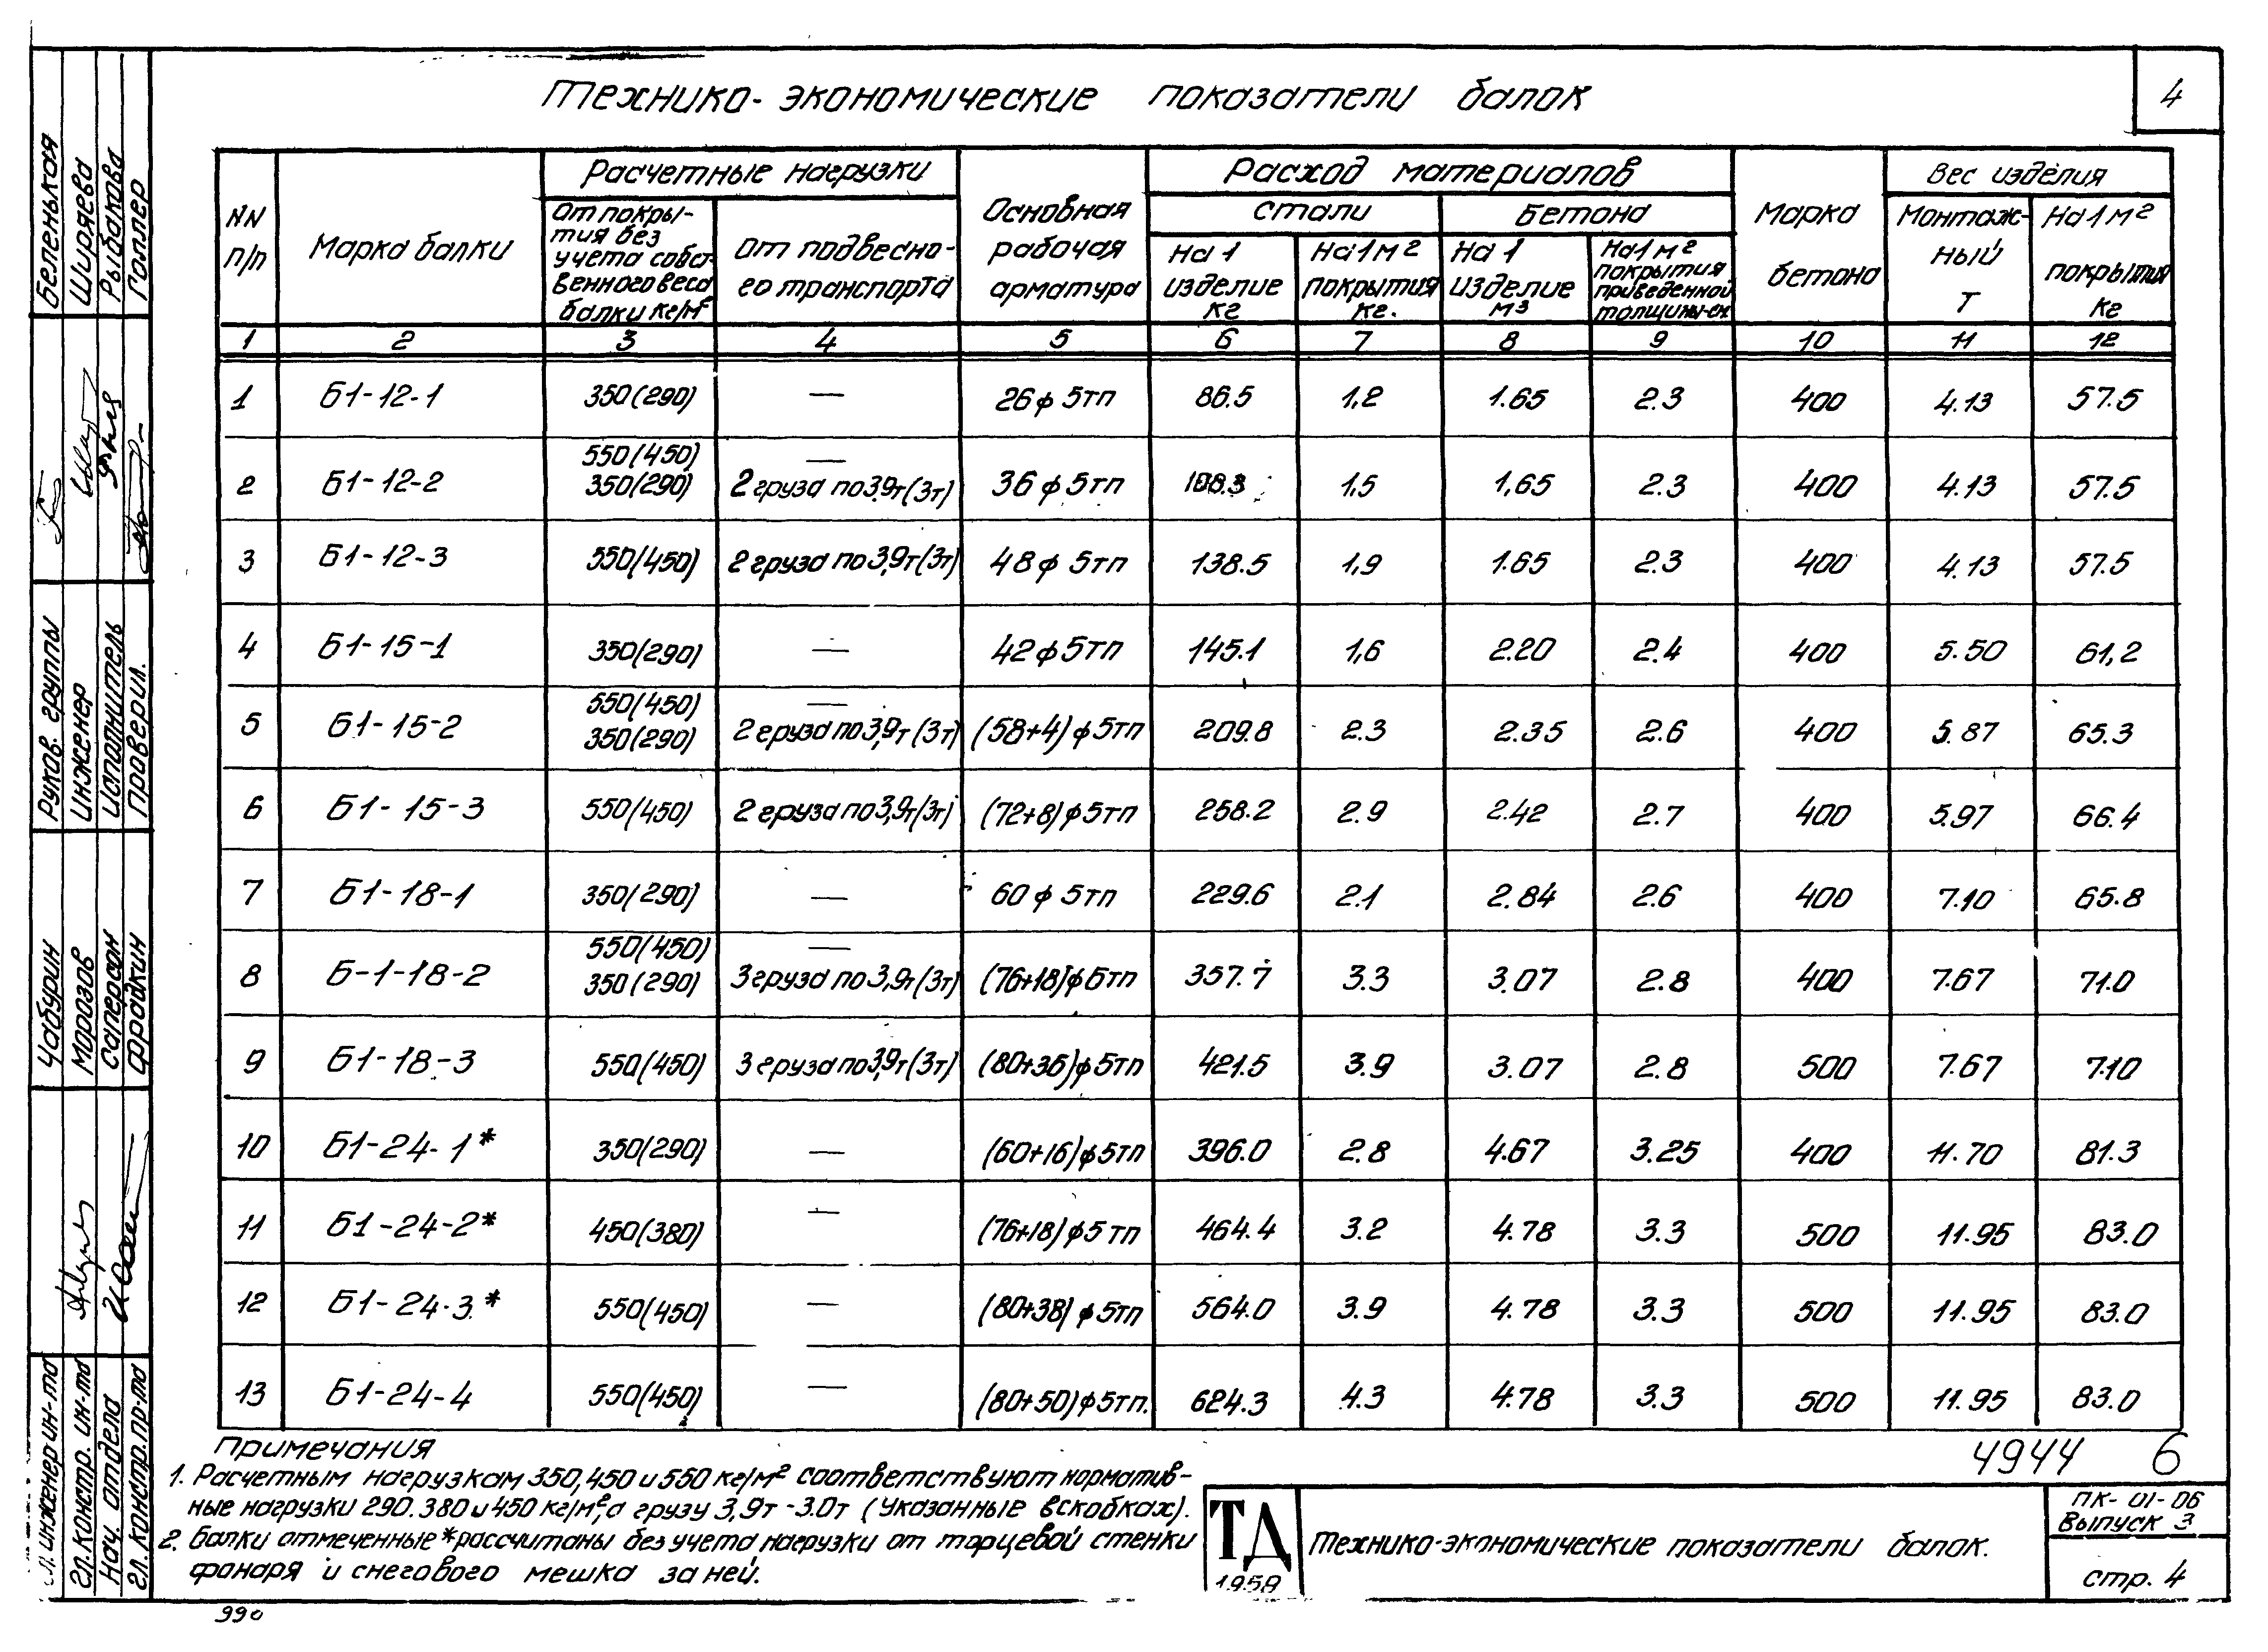 Технико-экономические показатели балок
4
NN п/п
Марка балки
Расчетные нагрузки
От покрытия без учета собственного веса балки кг/м²
От подвесно-
го транспорта
Основная
рабочая
арматура
Расход материалов
Стали
Бетона
На 1 изделие кг
На 1 м² покрытия кг.
На 1 изделие м³
На 1 м² покрытия приведенной толщины-см
Марка бетона
Вес изделия
Монтаж-
ный
т
На 1 м²
покрытия
кг
1 2 3 4 5 6 7 8 9 10 11 12
1 Б1-12-1 350(290) — 26ф5тп 86.5 1,2 1.65 2.3 400 4.13 57.5
550(450) —
2 Б1-12-2 350(290) 2 груза по 3,9т(3т) 36ф5тп 1,5 1,65 2.3 400 4.13 57.5
3 Б1-12-3 550(450) 2 груза по 3,9т(3т) 48ф5тп 138.5 1,9 1.65 2.3 400 4.13 57.5
4 Б1-15-1 350(290) — 42ф5тп 145.1 1,6 2.20 2.4 400 5.50 61,2
550(450) —
5 Б1-15-2 350(290) 2 груза по 3,9т(3т) (58+4)ф5тп 209.8 2.3 2.35 2.6 400 5.87 65.3
6 Б1-15-3 550(450) 2 груза по 3,9т(3т) (72+8)ф5тп 258.2 2.9 2.42 2.7 400 5.97 66.4
7 Б1-18-1 350(290) — 60ф5тп 229.6 2.1 2.84 2.6 400 7.10 65.8
550(450) —
8 Б-1-18-2 350(290) 3 груза по 3,9т(3т) (76+18)ф5тп 357.7 3.3 3.07 2.8 400 7.67 71.0
9 Б1-18-3 550(450) 3 груза по 3,9т(3т) (80+36)ф5тп 421.5 3.9 3.07 2.8 500 7.67 7.10
10 Б1-24-1* 350(290) — (60+16)ф5тп 396.0 2.8 4.67 3.25 400 11.70 81.3
11 Б1-24-2* 450(380) — (76+18)ф5тп 464.4 3.2 4.78 3.3 500 11.95 83.0
12 Б1-24-3* 550(450) — (80+38)ф5тп 564.0 3.9 4.78 3.3 500 11.95 83.0
13 Б1-24-4 550(450) — (80+50)ф5тп. 624.3 4.3 4.78 3.3 500 11.95 83.0
Примечания
1. Расчетным нагрузкам 350,450 и 550 кг/м² соответствуют норматив-
ные нагрузки 290.380 и 450 кг/м²,а грузу 3,9т-3.0т (указанные в скобках).
2. Балки отмеченные * рассчитаны без учета нагрузки от торцевой стенки
фонаря и снегового мешка за ней.
4944 6
ТД
1958
Технико-экономические показатели балок.
ПК-01-06
Выпуск 3
стр. 4
990
Беленькая
Ширяева
Рыбакова
Галлер
Руков. группы
Инженер
Исполнитель
Проверил.
Чабурин
Морозов
Саперсон
Фрадкин
Гл. инженер ин-та
Гл. констр. ин-та
Нач. отдела
Гл. констр. пр-та